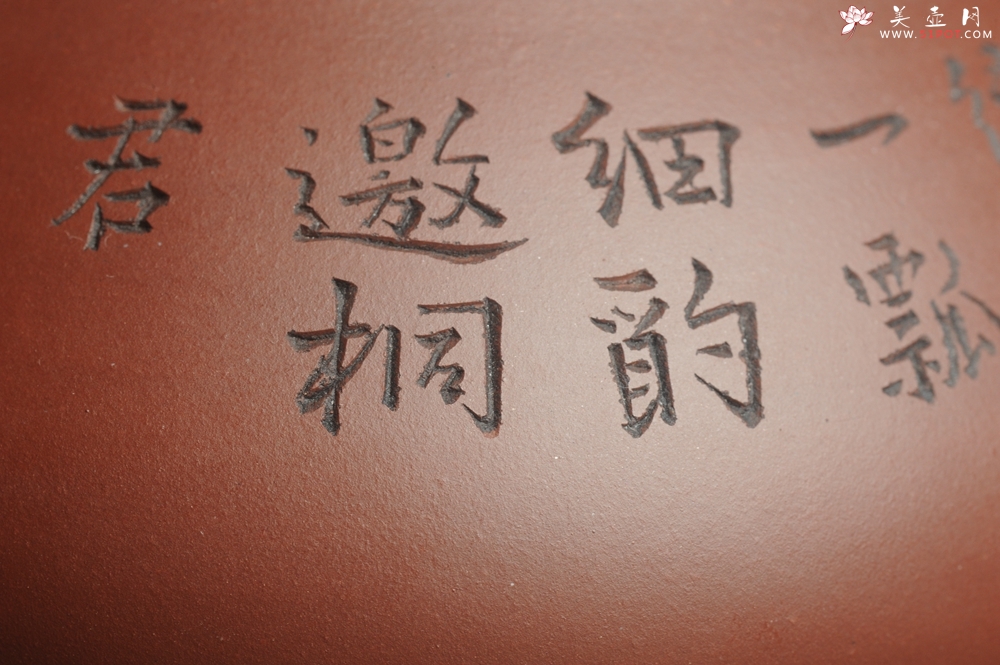 一瓢
细酌
邀桐
君
美壶网
WWW. .COM